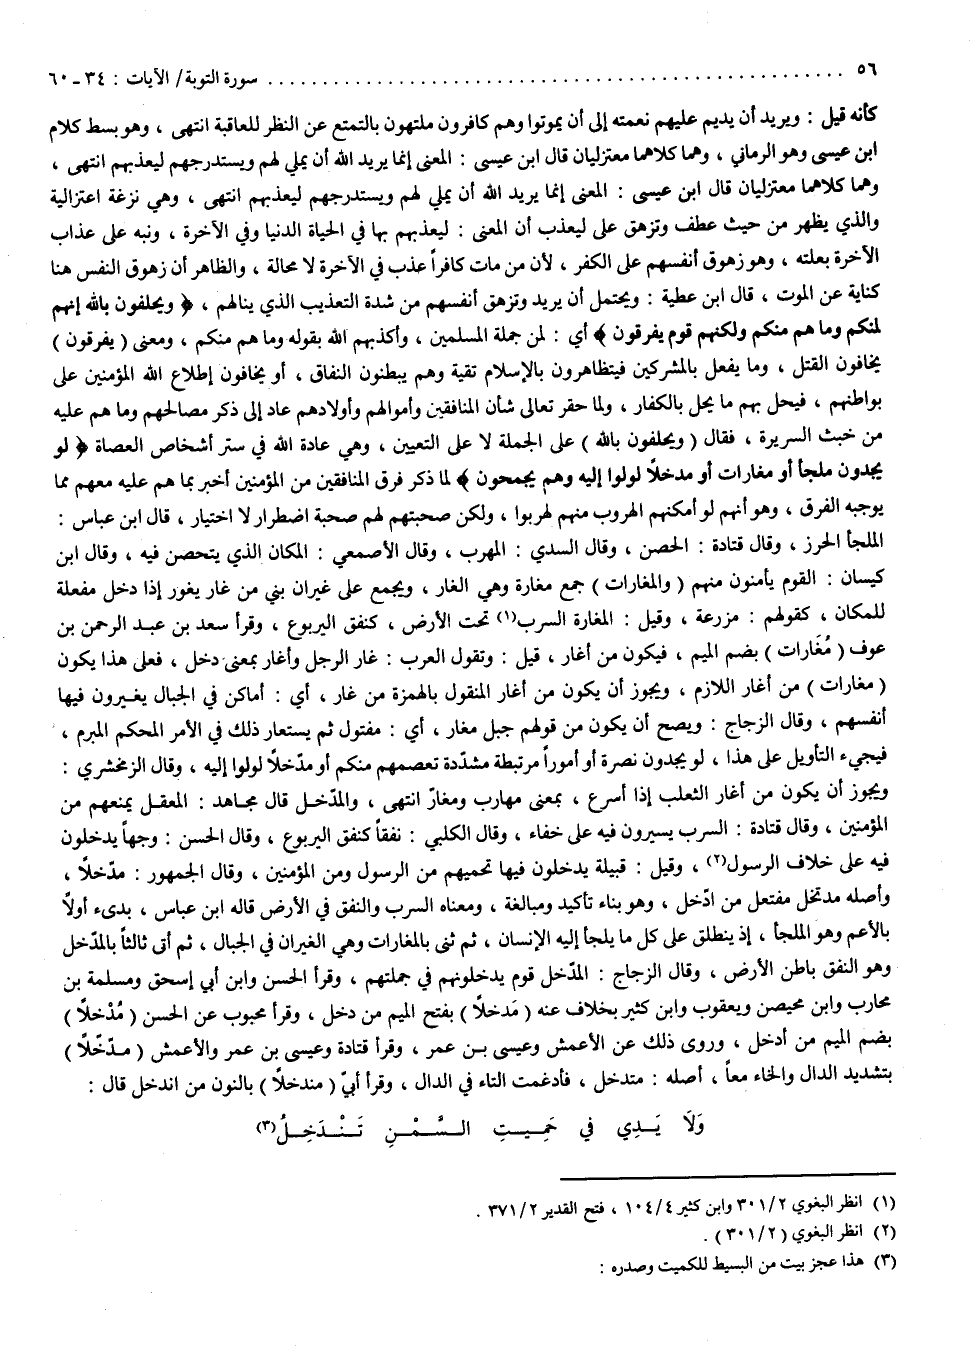 ٥٦ ........ سورة التوبة/ الآيات : ٣٤ ـ ٦٠
كأنه قيل : ويريد أن يديم عليهم نعمته إلى أن يموتوا وهم كافرون ملتهون بالتمتع عن النظر للعاقبة انتهى ، وهو بسط كلام
ابن عيسى وهو الرماني ، وهما كلاهما معتزليان قال ابن عيسى : المعنى إنما يريد الله أن يملي لهم ويستدرجهم ليعذبهم انتهى ،
وهما كلاهما معتزليان قال ابن عيسى : المعنى إنما يريد الله أن يملي لهم ويستدرجهم ليعذبهم انتهى ، وهي نزغة اعتزالية
والذي يظهر من حيث عطف وتزهق على ليعذب أن المعنى : ليعذبهم بها في الحياة الدنيا وفي الآخرة ، ونبه على عذاب
الآخرة بعلته ، وهو زهوق أنفسهم على الكفر ، لأن من مات كافراً عذب في الآخرة لا محالة ، والظاهر أن زهوق النفس هنا
كناية عن الموت ، قال ابن عطية : ويحتمل أن يريد وتزهق أنفسهم من شدة التعذيب الذي ينالهم ، ﴿ ويحلفون بالله إنهم
لمنكم وما هم منكم ولكنهم قوم يفرقون ﴾ أي : لمن جملة المسلمين ، وأكذبهم الله بقوله وما هم منكم ، ومعنى ( يفرقون )
يخافون القتل ، وما يفعل بالمشركين فيتظاهرون بالإسلام تقية وهم يبطنون النفاق ، أو يخافون إطلاع الله المؤمنين على
بواطنهم ، فيحل بهم ما يحل بالكفار ، ولما حقر تعالى شأن المنافقين وأموالهم وأولادهم عاد إلى ذكر مصالحهم وما هم عليه
من خبث السريرة ، فقال ( ويحلفون بالله ) على الجملة لا على التعيين ، وهي عادة الله في ستر أشخاص العصاة ﴿ لو
يجدون ملجأ أو مغارات أو مدخلاً لولوا إليه وهم يجمحون ﴾ لما ذكر فرق المنافقين من المؤمنين أخبر بما هم عليه معهم مما
يوجبه الفرق ، وهو أنهم لو أمكنهم الهروب منهم لهربوا ، ولكن صحبتهم لهم صحبة اضطرار لا اختيار ، قال ابن عباس :
الملجأ الحرز ، وقال قتادة : الحصن ، وقال السدي : المهرب ، وقال الأصمعي : المكان الذي يتحصن فيه ، وقال ابن
كيسان : القوم يأمنون منهم ( والمغارات ) جمع مغارة وهي الغار ، ويجمع على غيران بني من غار يغور إذا دخل مفعلة
للمكان ، كقولهم : مزرعة ، وقيل : المغارة السرب(١) تحت الأرض ، كنفق اليربوع ، وقرأ سعد بن عبد الرحمن بن
عوف ( مُغَارات ) بضم الميم ، فيكون من أغار ، قيل : وتقول العرب : غار الرجل وأغار بمعنى دخل ، فعلى هذا يكون
( مغارات ) من أغار اللازم ، ويجوز أن يكون من أغار المنقول بالهمزة من غار ، أي : أماكن في الجبال يغيرون فيها
أنفسهم ، وقال الزجاج : ويصح أن يكون من قولهم جبل مغار ، أي : مفتول ثم يستعار ذلك في الأمر المحكم المبرم ،
فيجيء التأويل على هذا ، لو يجدون نصرة أو أموراً مرتبطة مشدّدة تعصمهم منكم أو مدّخلاً لولوا إليه ، وقال الزمخشري :
ويجوز أن يكون من أغار الثعلب إذا أسرع ، بمعنى مهارب ومغارّ انتهى ، والمدّخل قال مجاهد : المعقل يمنعهم من
المؤمنين ، وقال قتادة : السرب يسيرون فيه على خفاء ، وقال الكلبي : نفقاً كنفق اليربوع ، وقال الحسن : وجهاً يدخلون
فيه على خلاف الرسول(٢) ، وقيل : قبيلة يدخلون فيها تحميهم من الرسول ومن المؤمنين ، وقال الجمهور : مدّخلاً ،
وأصله مدتخل مفتعل من ادّخل ، وهو بناء تأكيد ومبالغة ، ومعناه السرب والنفق في الأرض قاله ابن عباس ، بدىء أولاً
بالأعم وهو الملجأ ، إذ ينطلق على كل ما يلجأ إليه الإنسان ، ثم ثنى بالمغارات وهي الغيران في الجبال ، ثم أتى ثالثاً بالمدّخل
وهو النفق باطن الأرض ، وقال الزجاج : المدّخل قوم يدخلونهم في جملتهم ، وقرأ الحسن وابن أبي إسحق ومسلمة بن
محارب وابن محيصن ويعقوب وابن كثير بخلاف عنه ( مَدخلاً ) بفتح الميم من دخل ، وقرأ محبوب عن الحسن ( مُدْخلاً )
بضم الميم من أدخل ، وروى ذلك عن الأعمش وعيسى بن عمر ، وقرأ قتادة وعيسى بن عمر والأعمش ( مدّخّلاً )
بتشديد الدال والخاء معاً ، أصله : متدخل ، فأدغمت التاء في الدال ، وقرأ أبيّ ( مندخلاً ) بالنون من اندخل قال :
وَلَا يَدِي في حَمِيتِ السَّمْنِ تَنْدَخِلُ(٣)
(١) انظر البغوي ٣٠١/٢ وابن كثير ١٠٤/٤ ، فتح القدير ٣٧١/٢ .
(٢) انظر البغوي ( ٣٠١/٢ ) .
(٣) هذا عجز بيت من البسيط للكميت وصدره :